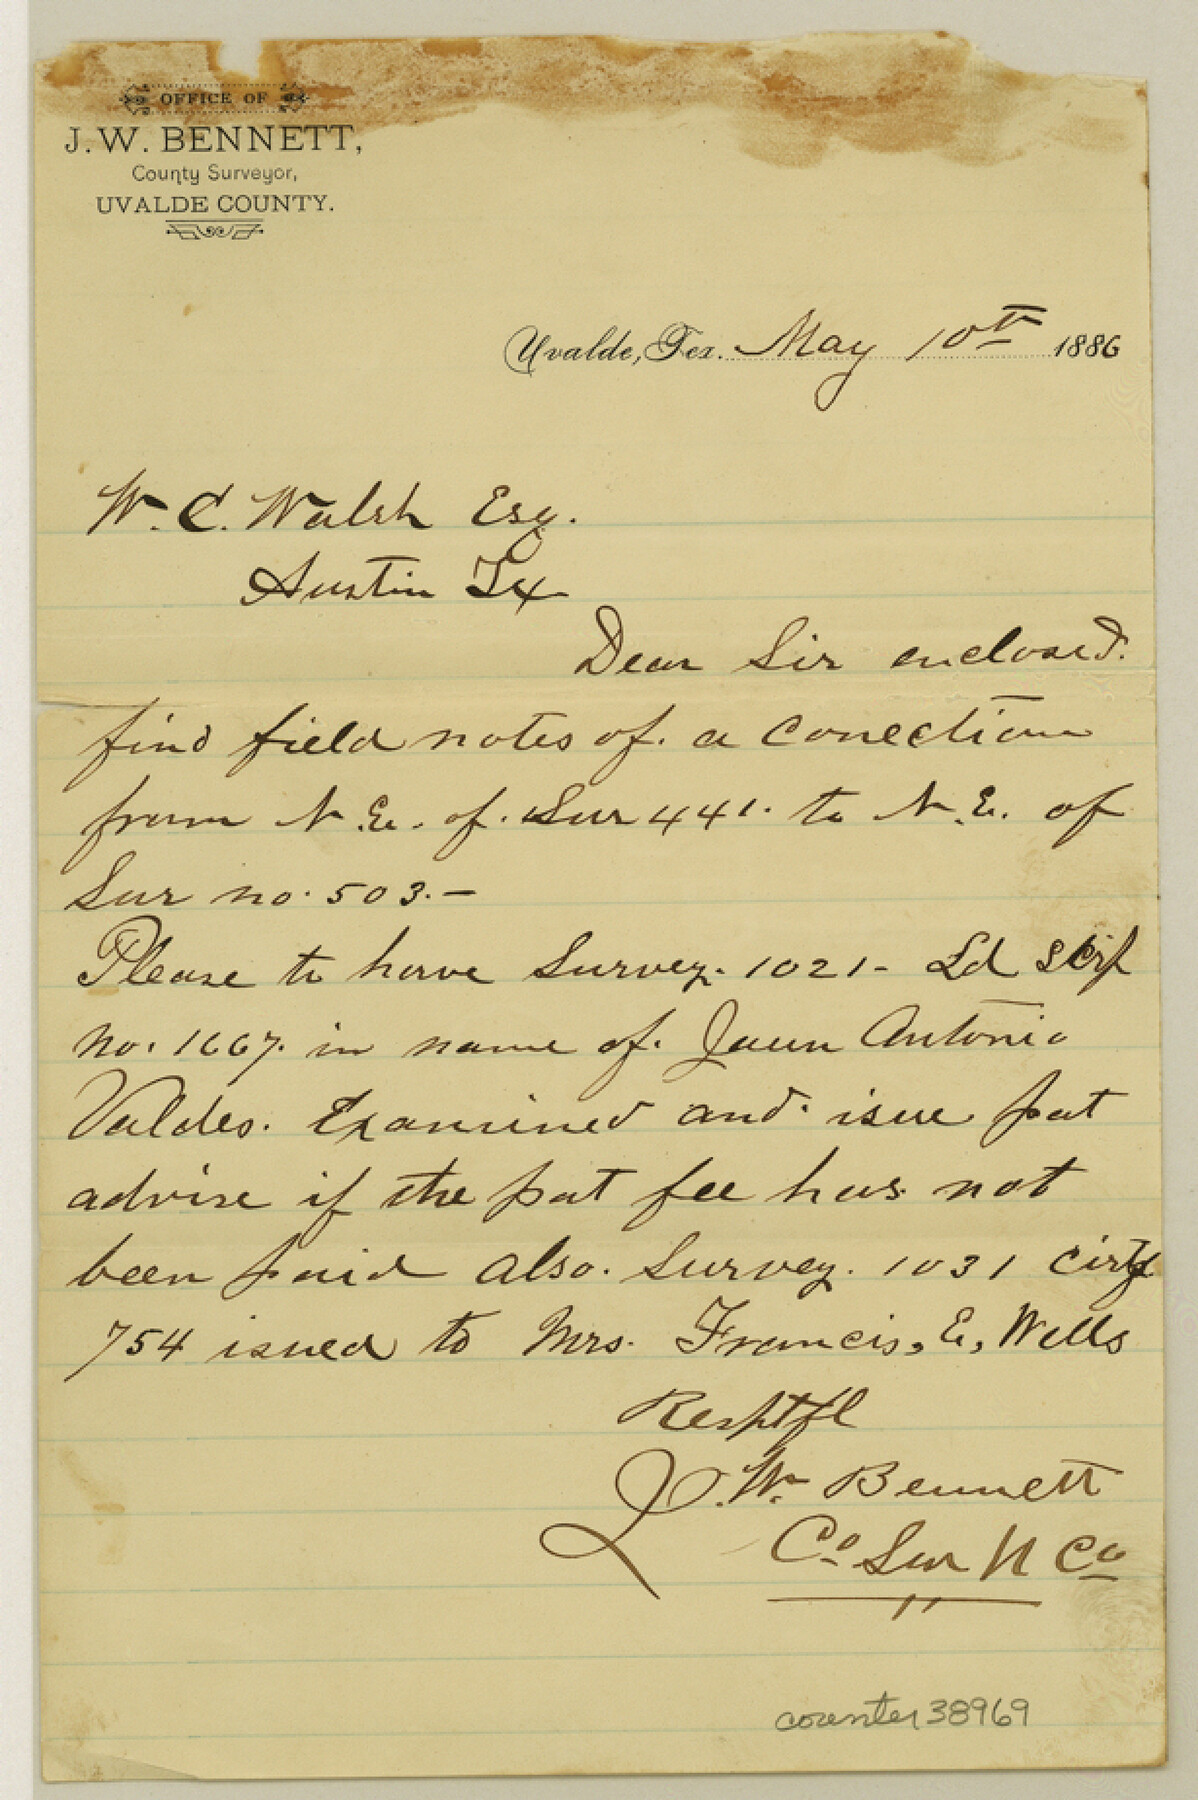 OFFICE OF
J. W. BENNETT,
County Surveyor,
UVALDE COUNTY.
Uvalde, Tex. May 10th 1886
W. C. Walsh Esq.
Austin Tx
Dear Sir enclosed.
find field notes of. a Conection
from N.E. of. Sur 441. to N.E. of
Sur no. 503.-
Please to have Survey. 1021- Ld Scrip
no. 1667. in name of. Jaun Antonio
Valdes. Examined and. isue pat
advise if the pat fee has. not
been paid also. Survey. 1031 Cirtf
754 issued to Mrs. Francis, E, Wells
Resptfl
J. W. Bennett
Co Sur U Co
counter 38969